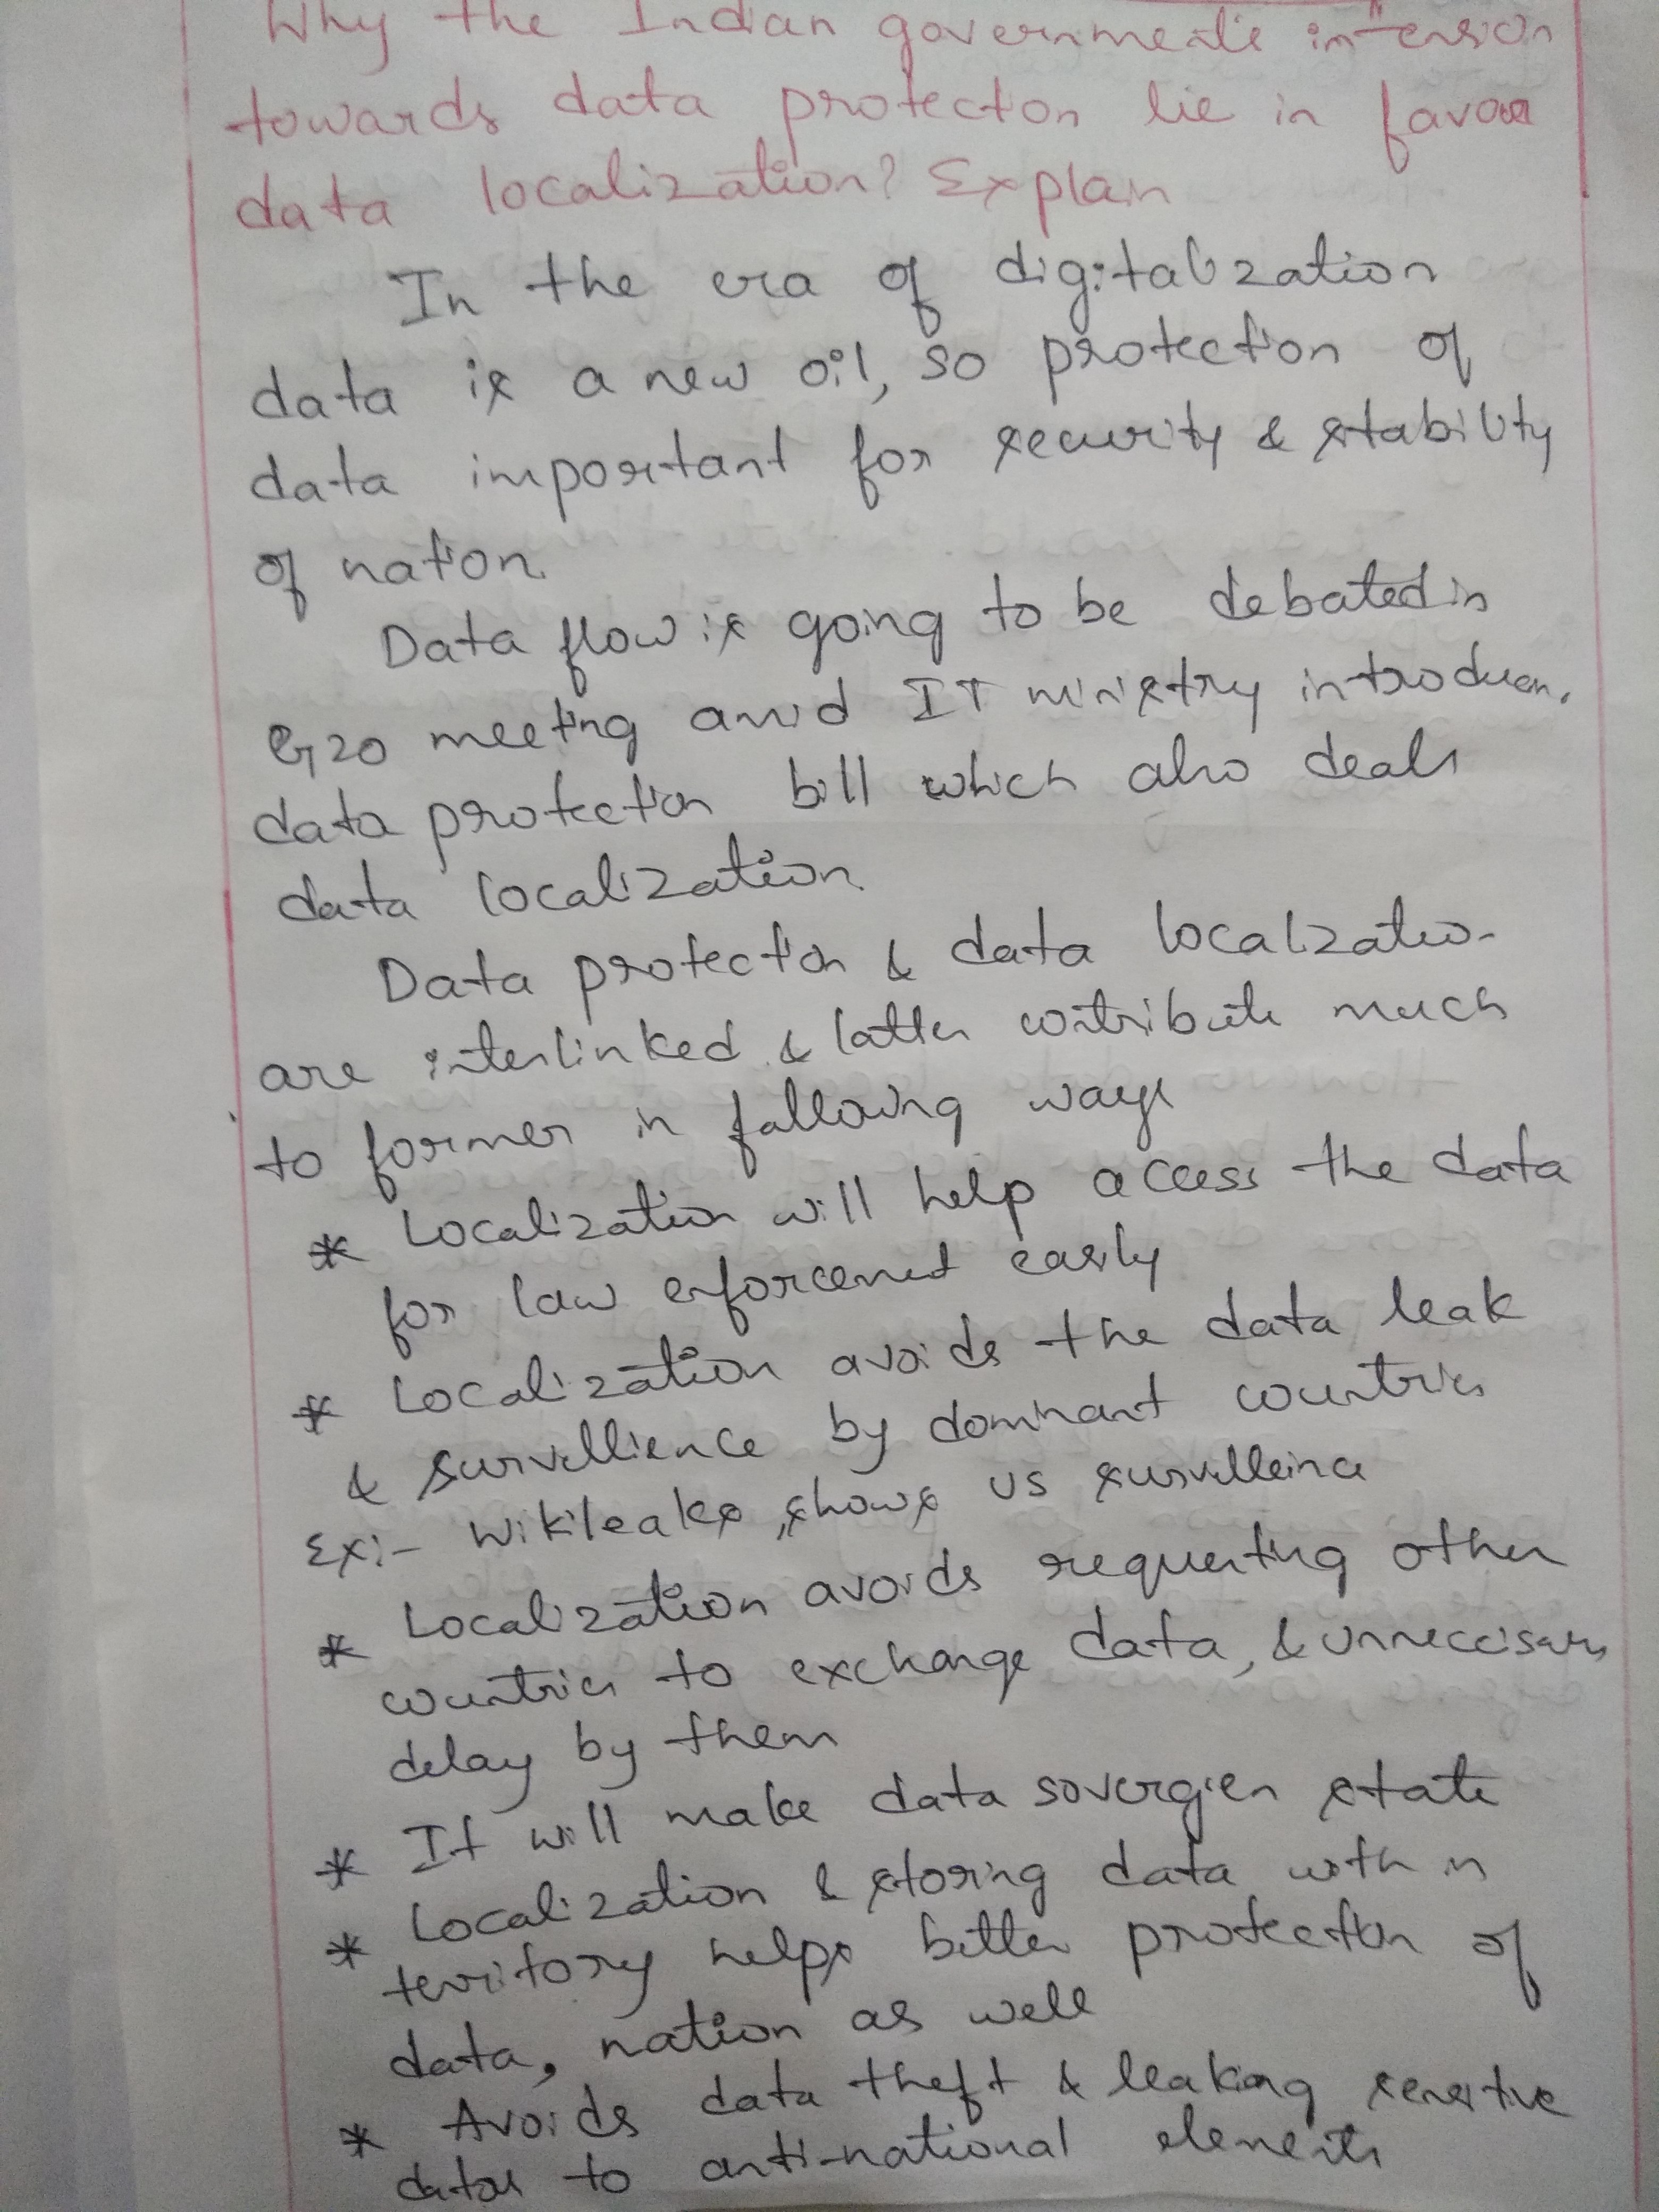 Why the Indian government's intension
towards data protecton lie in favour
data localization? Explain
In the era of digitalization
data is a new oil, so protection of
data important for security & stability
of nation.
Data flow is going to be debated in
G20 meeting amid IT ministry introducen.
data protection bill which also deals
data localization.
Data protection & data localizatio-
are interlinked & latter contribute much
to former in following ways
* Localization will help access the data
for law enforcement easily
* Localization avoids the data leak
& survellience by dominant countries
Ex:- Wikileaks, shows US survelleince
* Localization avoids requesting other
countries to exchange data, & unneccisary
delay by them
* It will make data sovergien state
* Localization & storing data with in
territory helps better protection of
data, nation as well
* Avoids data theft & leaking sensitive
datas to anti-national elements